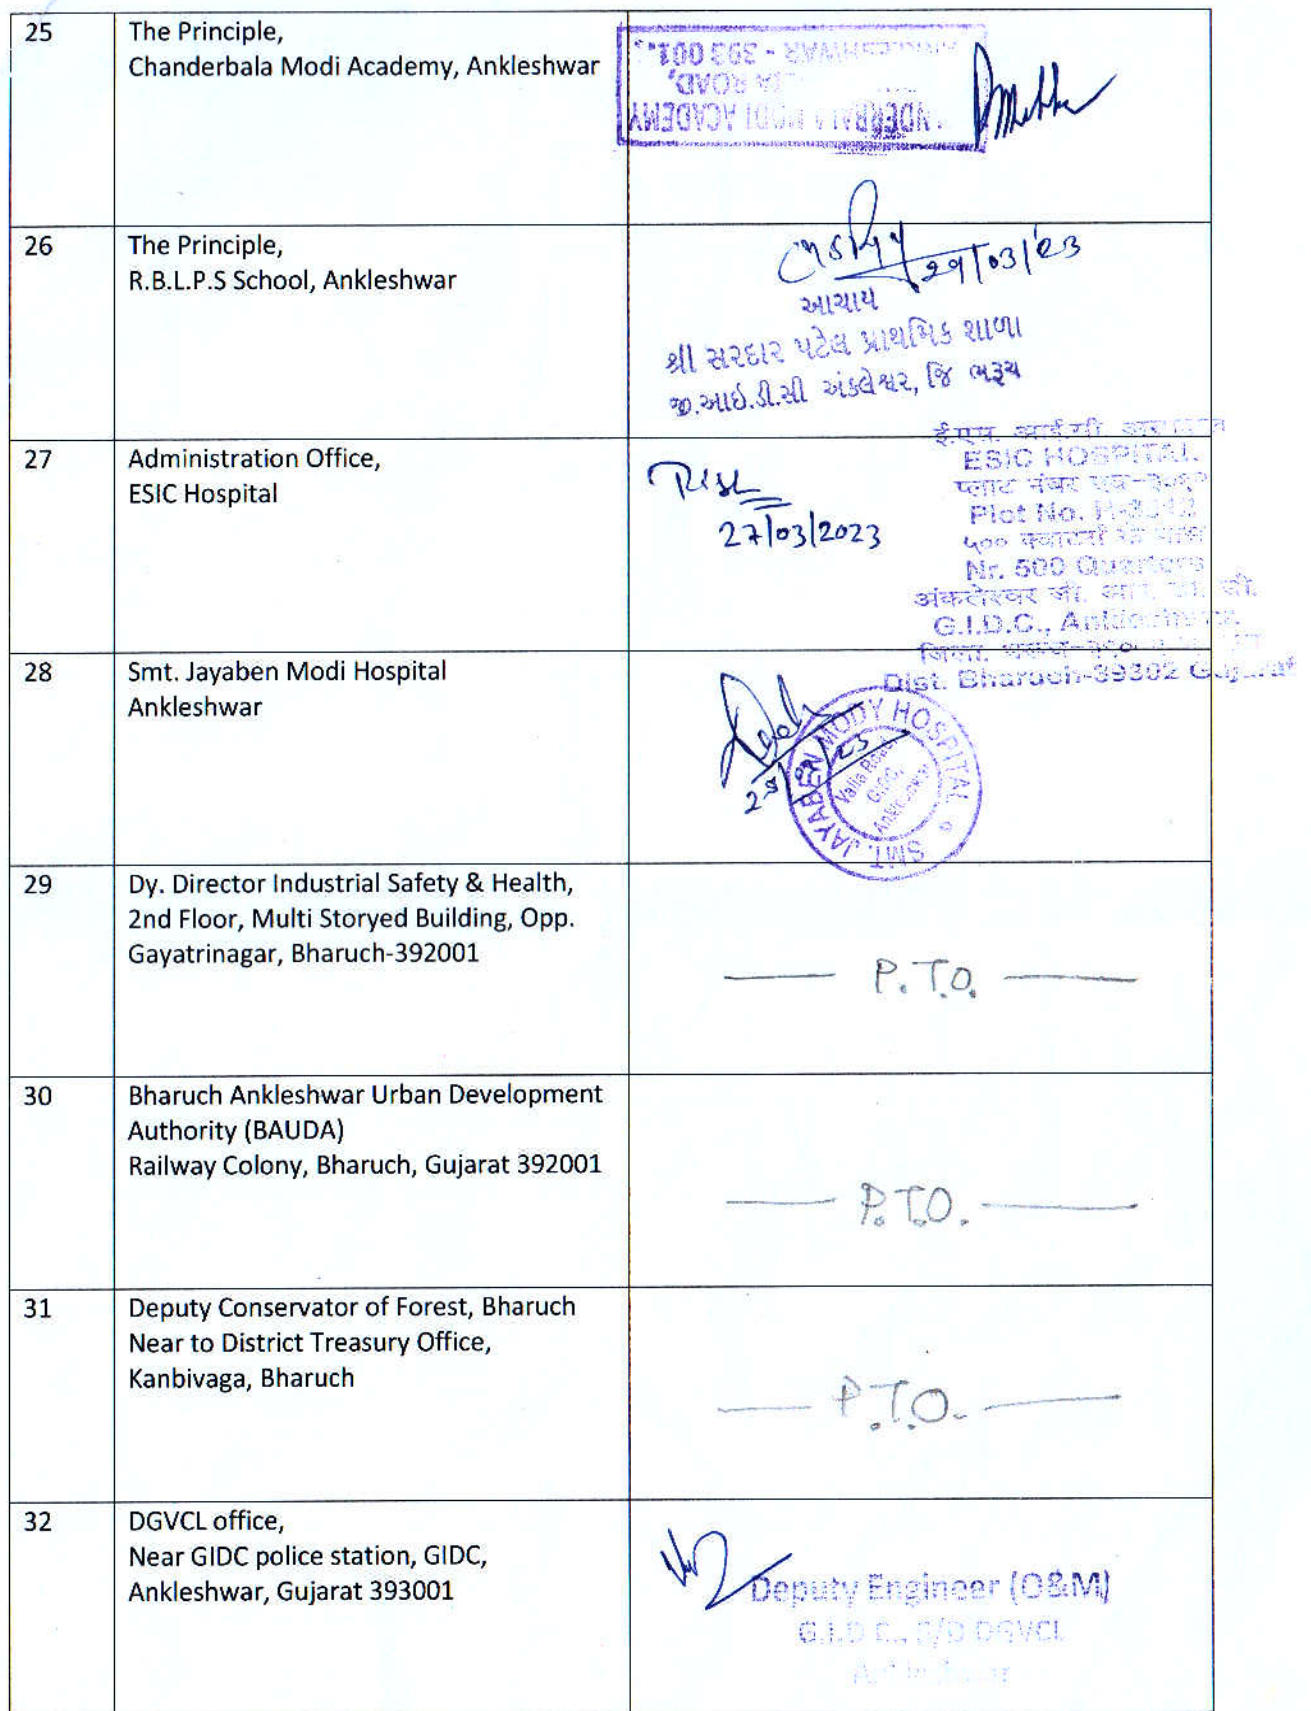 25
The Principle,
Chanderbala Modi Academy, Ankleshwar
MODI ACADEMY
ROAD,
- 393 001.
26
The Principle,
R.B.L.P.S School, Ankleshwar
29/03/23
આચાર્ય
શ્રી સરદાર પટેલ પ્રાથમિક શાળા
જી.આઈ.ડી.સી અંકલેશ્વર, જિ ભરૂચ
27
Administration Office,
ESIC Hospital
27/03/2023
ESIC HOSPITAL
प्लाट नंबर
Plot No.
Nr. 500 Quarters
अंकलेश्वर जी.
G.I.D.C.,
जिला.
Dist. Bharuch-39302 Gujarat
28
Smt. Jayaben Modi Hospital
Ankleshwar
SMT. JAYABEN MODY HOSPITAL
Valia Road
GIDC,
Ankleshwar
29
Dy. Director Industrial Safety & Health,
2nd Floor, Multi Storyed Building, Opp.
Gayatrinagar, Bharuch-392001
P.T.O.
30
Bharuch Ankleshwar Urban Development
Authority (BAUDA)
Railway Colony, Bharuch, Gujarat 392001
P.T.O.
31
Deputy Conservator of Forest, Bharuch
Near to District Treasury Office,
Kanbivaga, Bharuch
P.T.O.
32
DGVCL office,
Near GIDC police station, GIDC,
Ankleshwar, Gujarat 393001
Deputy Engineer (O&M)
G.I.D.C., S/D DGVCL